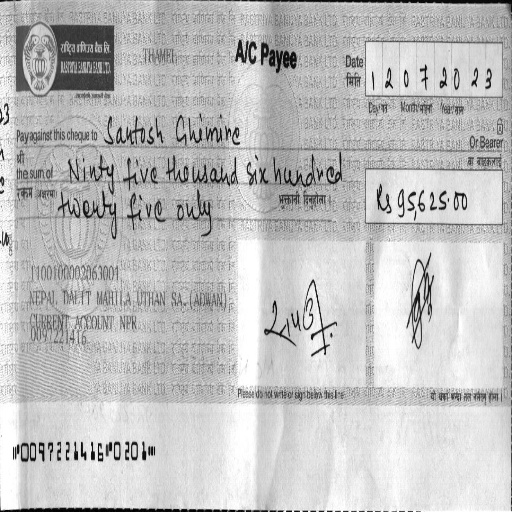 राष्ट्रिय वाणिज्य बैंक लि.
RASTRIYA BANIJYA BANK LTD.
THAMEL
A/C Payee
Date
मिति
1 2 0 7 2 0 2 3
Day/गते Month/महिना Year/साल
Pay against this cheque to Santosh Ghimire
Or Bearer
श्री
वा वाहकलाई
the sum of Ninty five thousand six hundred
रकम अक्षरमा
twenty five only
भुक्तानी दिनुहोला ।
Rs 95,625.00
1100100002063001
NEPAL DALIT MAHILA UTHAN SA. (ADWAN)
CURRENT ACCOUNT NPR
0097221416
Please do not write or sign below this line
⑈0097221416⑈0201⑈